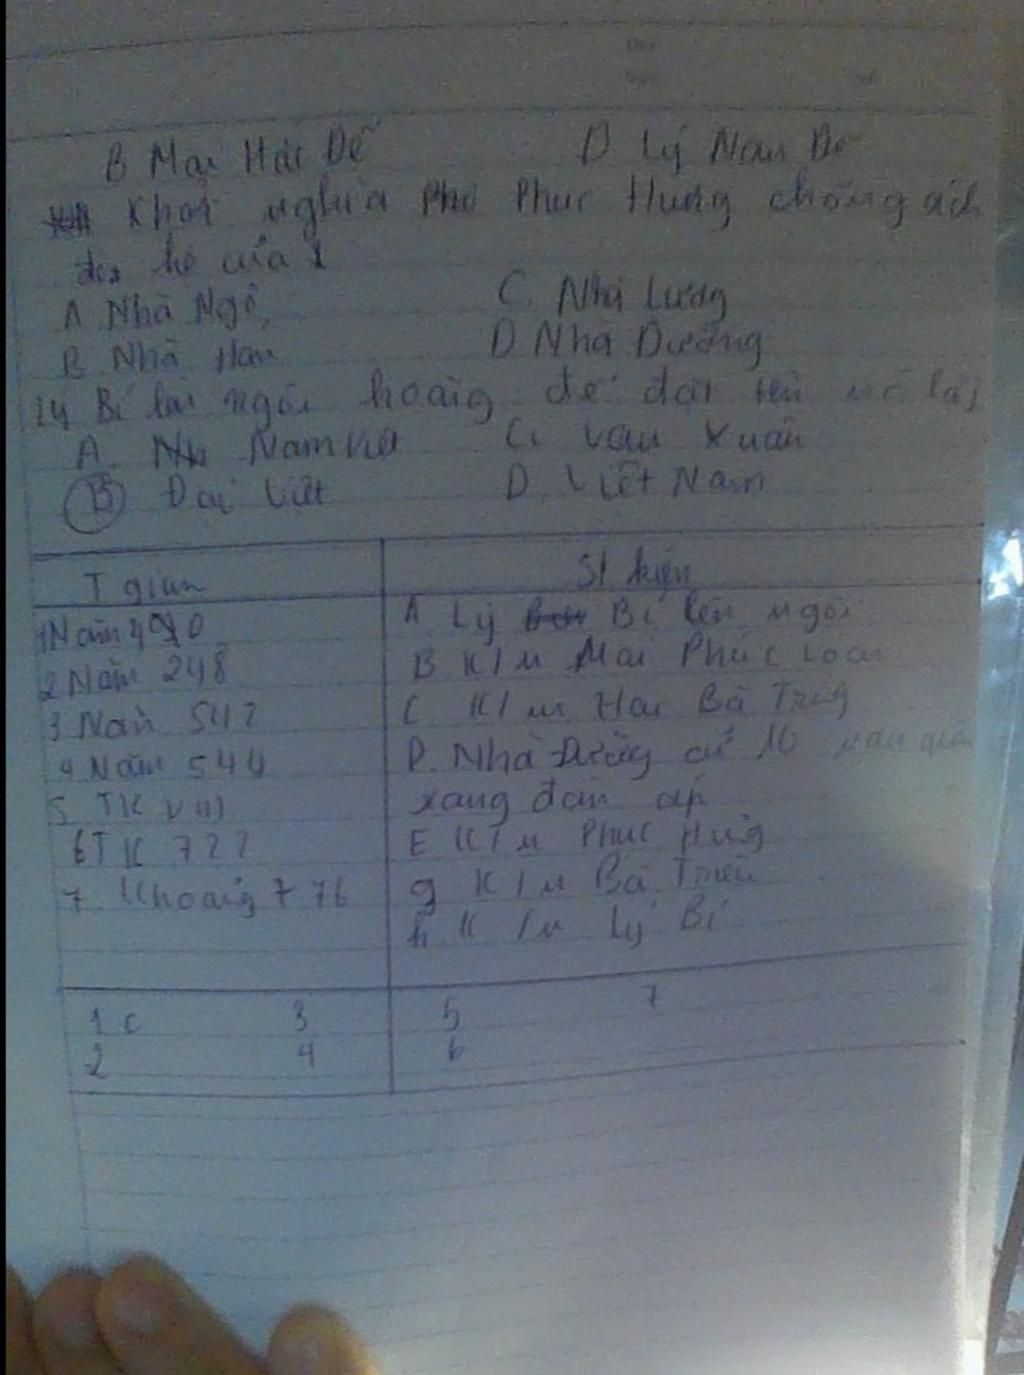 B Mai Hắc Đế D Lý Nam Đế
Khởi nghĩa Phục Hưng chống ách
đô hộ của
A Nhà Ngô, C. Nhà Lương
B Nhà Hán D Nhà Đường
14 Bí lên ngôi hoàng đế đặt tên
A. Nam Việt C. Vạn Xuân
B Đại Việt D. Việt Nam
T gian Sự kiện
1 Năm 40 A Lý Bí lên ngôi
2 Năm 248 B K/n Mai Phúc Loan
3 Năm 542 C K/n Hai Bà Trưng
4 Năm 544 D. Nhà Đường cử 10 vạn quân
5 TK VIII xang đàn áp
6 TK 722 E K/n Phùc Hưng
7 Khoảng 776 g K/n Bà Triệu
h K/n Lý Bí
1 c 3 5 7
2 4 6